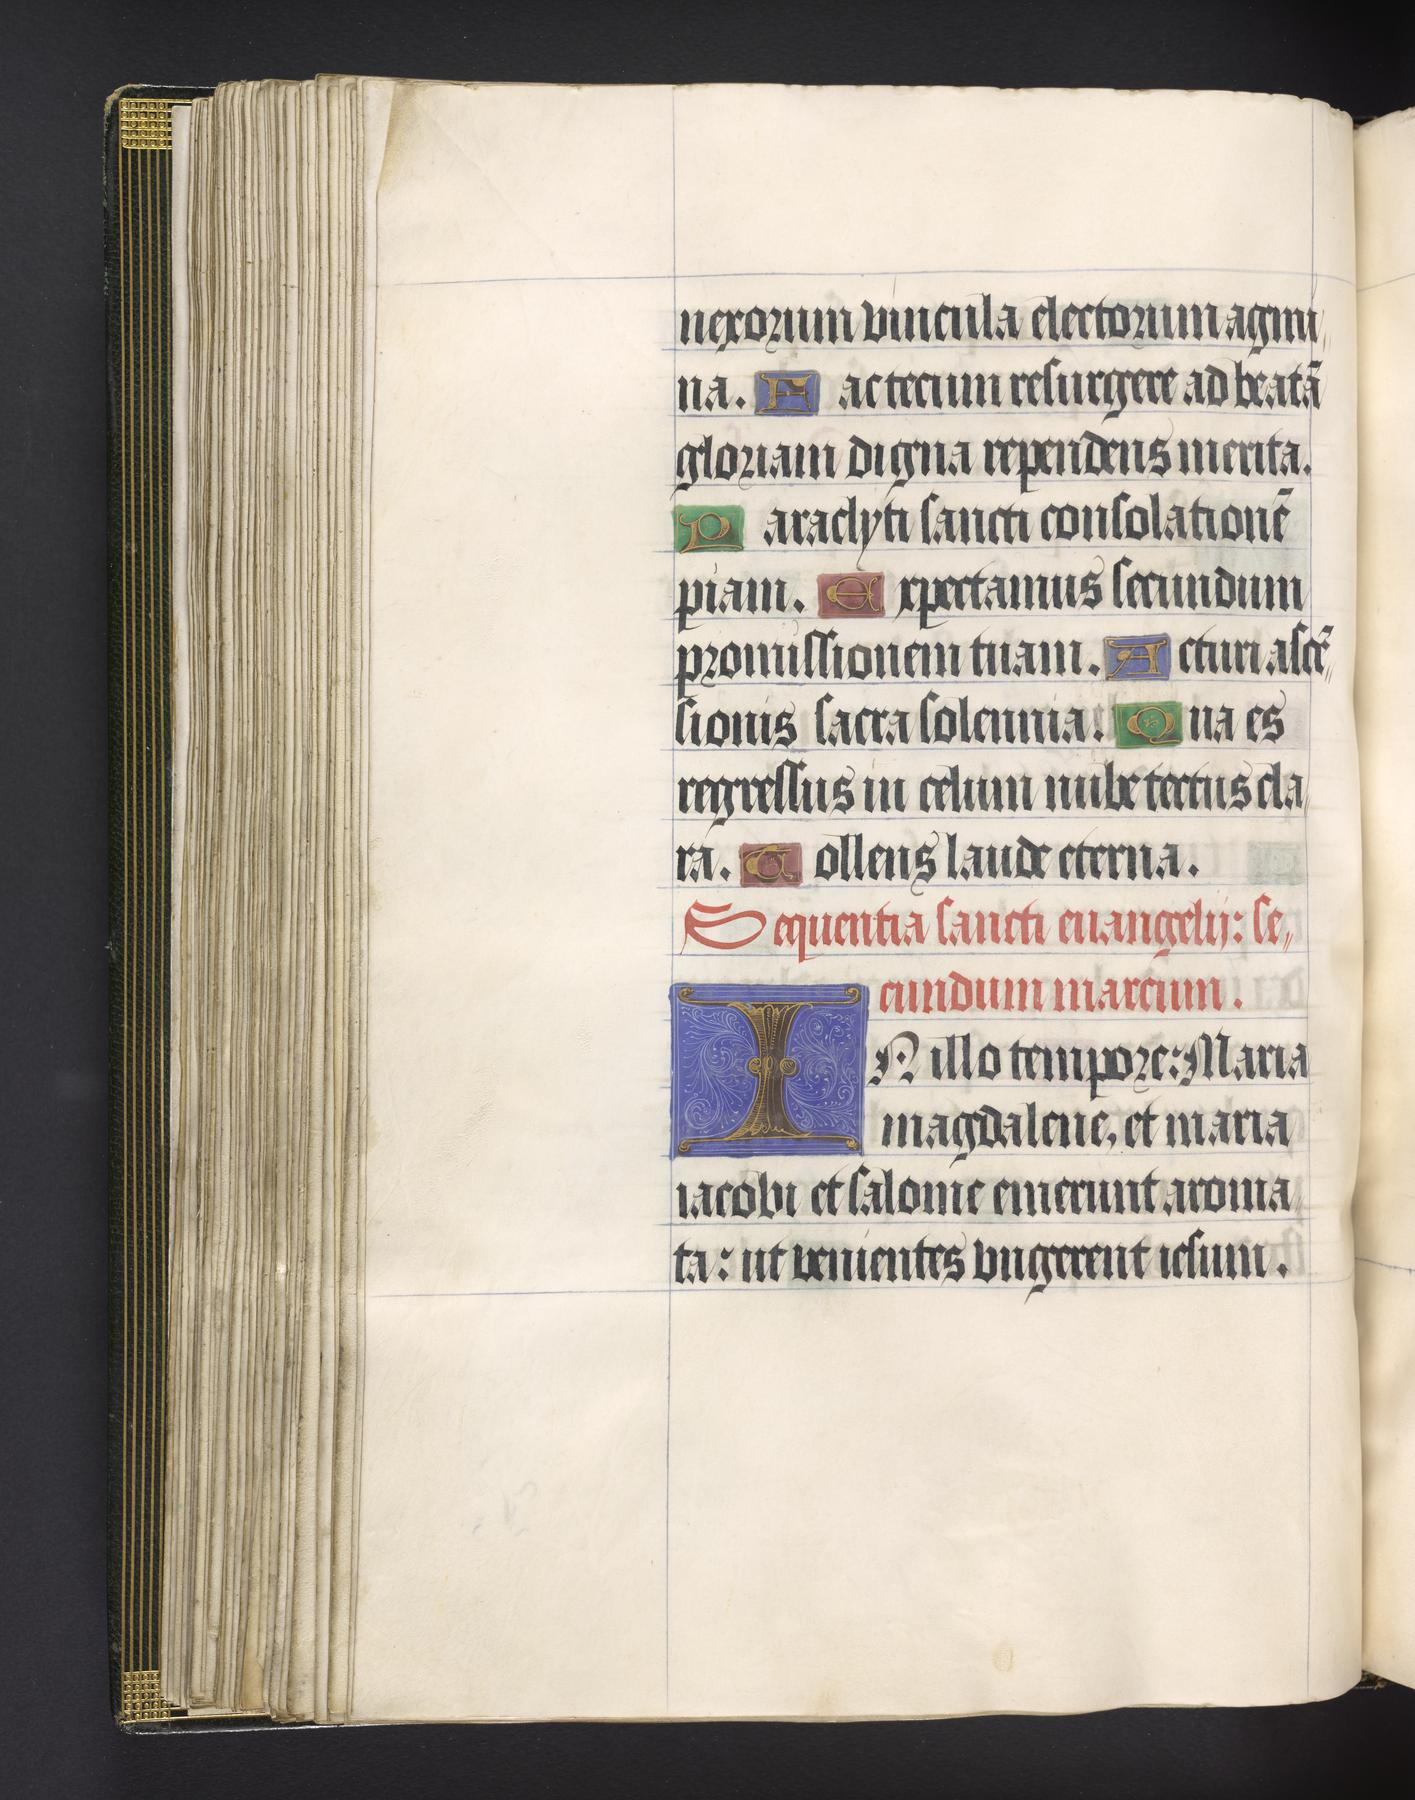 nexorum vincula electorum agmi,
na. Fac tecum resurgere ad beatā
gloriam digna rependens merita.
Paraclyti sancti consolationē
piam. Expectamus secundum
promissionem tuam. Acturi ascē,,
sionis sacra solennia. Qua es
regressus in celum nube tectus cla,
ra. Tollens laude eterna.
Sequentia sancti euangelij: se,,
cundum marcum.
IN illo tempore: Maria
magdalene, et maria
iacobi et salome emerunt aroma,
ta: ut venientes vngerent iesum.